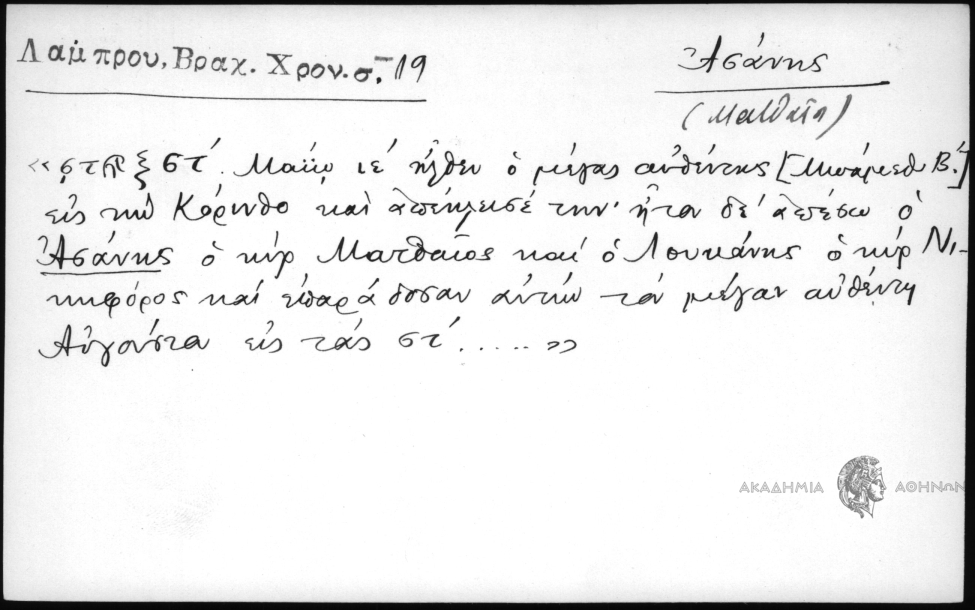 Λαμπρου, Βραχ. Χρον. σ. 19
Ἀσάνης
(Ματθαῖος)
«͵ϛϡξϛʹ. Μαΐῳ ιεʹ ἦλθεν ὁ μέγας αὐθέντης [Μωάμεθ Β΄]
εἰς τὴν Κόρινθο καὶ ἀπέκλεισέ την· ἦτα δὲ ἀπέσω ὁ
Ἀσάνης ὁ κὺρ Ματθαῖος καί ὁ Λουκάνης ὁ κὺρ Νι-
κηφόρος καί ἐπαράδοσαν αὐτήν τόν μέγαν αὐθέντη
Αὐγούστα εἰς τάς στʹ......»
ΑΚΑΔΗΜΙΑ ΑΘΗΝΩΝ